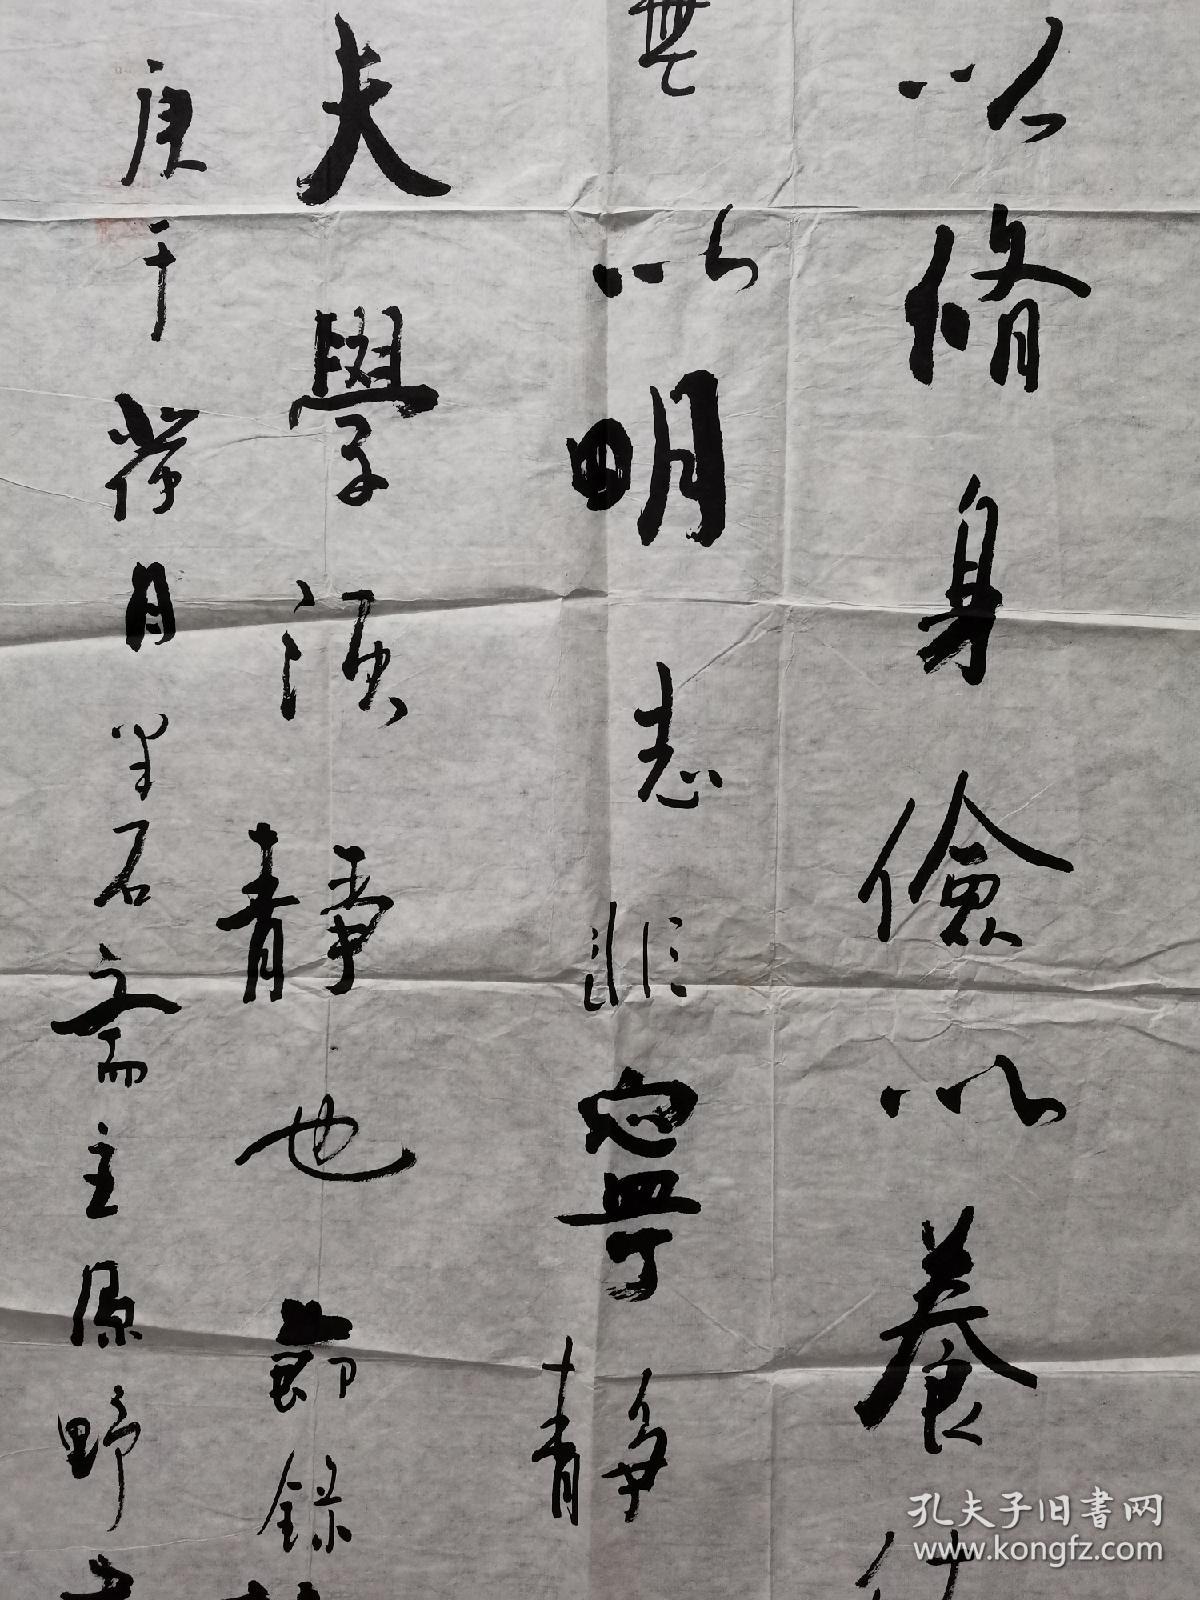 以脩身儉以養
無以明志非寧靜
夫學須靜也節錄
庚午荷月半石斋主原野
孔夫子旧书网
www.kongfz.com